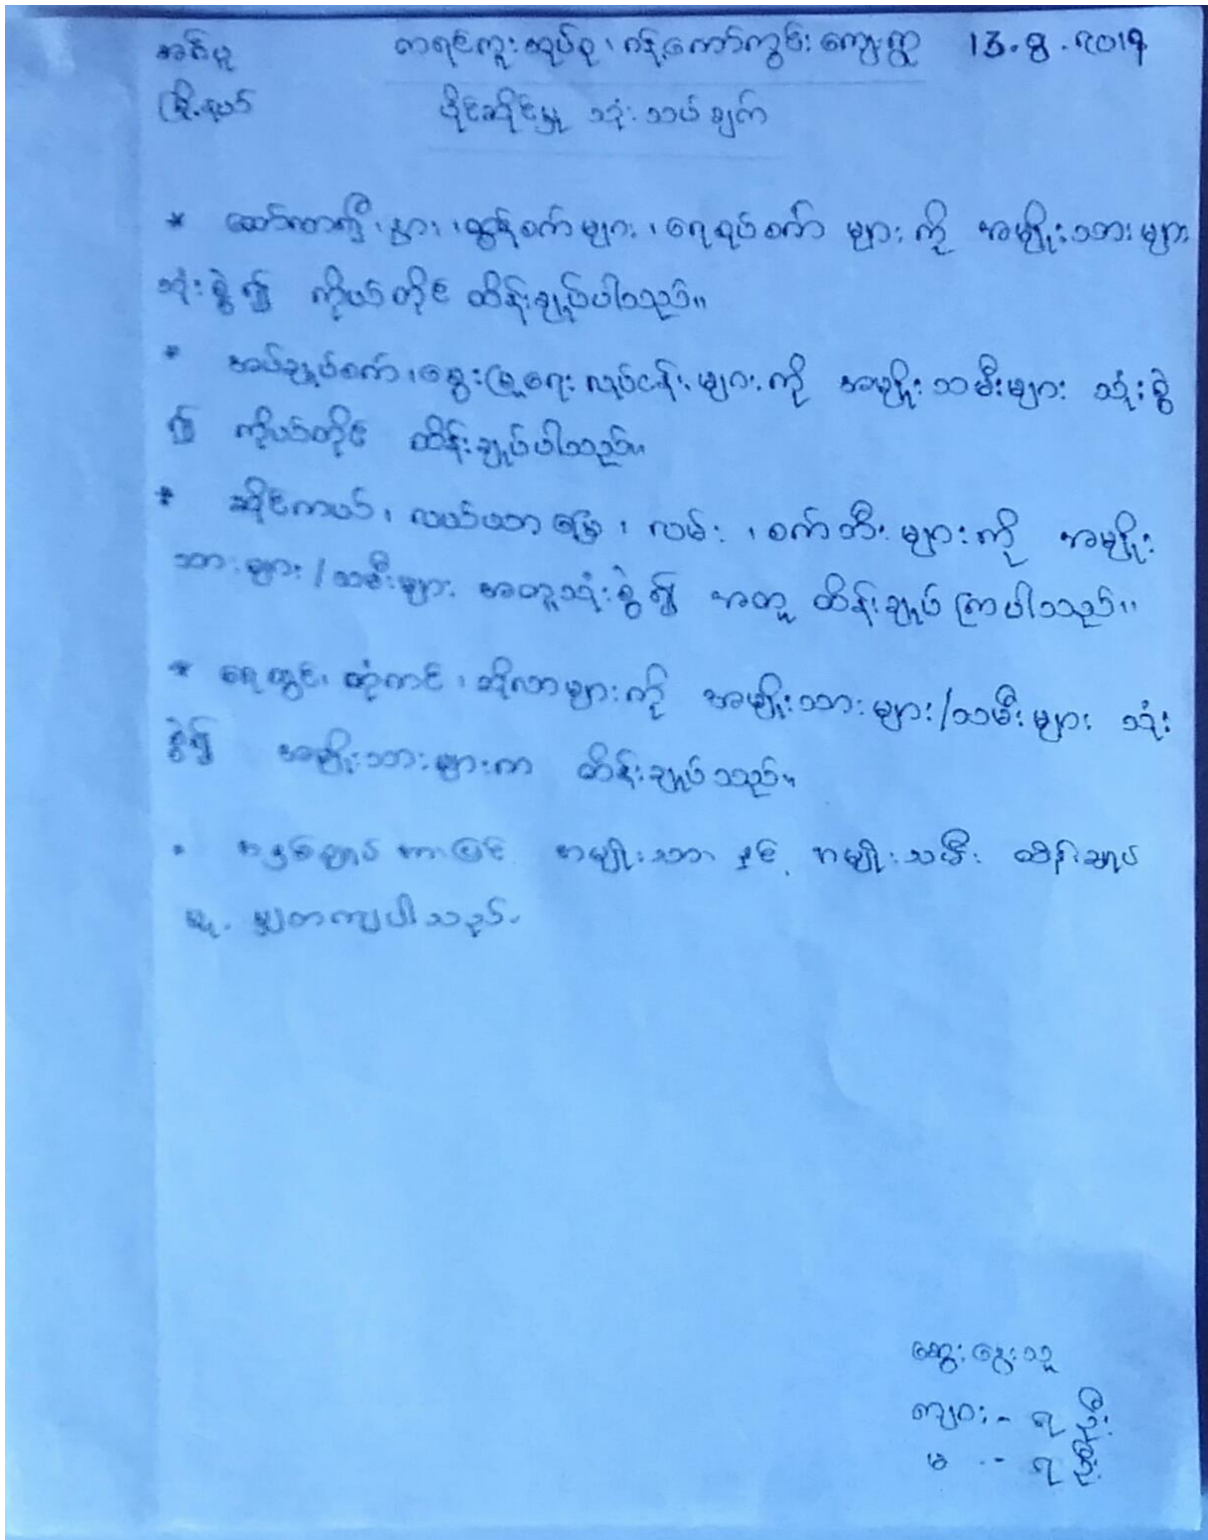 အင်းပူ တရင်ကူးအုပ်စု၊ ဂန့်ကော်ကွင်း ကျေးရွာ 13.8.2019
မြို့နယ် ပိုင်ဆိုင်မှု သုံးသပ်ချက်
* ထော်လာဂျီ၊ နွား၊ ထွန်စက်များ၊ ရေစုပ်စက် များကို အမျိုးသားများ
သုံးစွဲ၍ ကိုယ်တိုင် ထိန်းချုပ်ပါသည်။
* အပ်ချုပ်စက်၊ မွေးမြူရေး လုပ်ငန်းများကို အမျိုးသမီးများ သုံးစွဲ
၍ ကိုယ်တိုင် ထိန်းချုပ်ပါသည်။
* ဆိုင်ကယ်၊ လယ်ယာမြေ၊ လမ်း၊ စက်ဘီးများကို အမျိုး
သားများ/သမီးများ အတူသုံးစွဲ၍ အတူ ထိန်းချုပ်ကြပါသည်။
* ရေတွင်း၊ တုံကင်၊ ဆိုလာများကို အမျိုးသားများ/သမီးများ သုံး
စွဲ၍ အမျိုးသားများက ထိန်းချုပ်သည်။
* အနှစ်ချုပ်အားဖြင့် အမျိုးသား နှင့် အမျိုးသမီး ထိန်းချုပ်
မှု မျှတကျပါသည်။
ဆွေးနွေးသူ
ကျား - ၅ ဦး
မ - ၅ ဦး